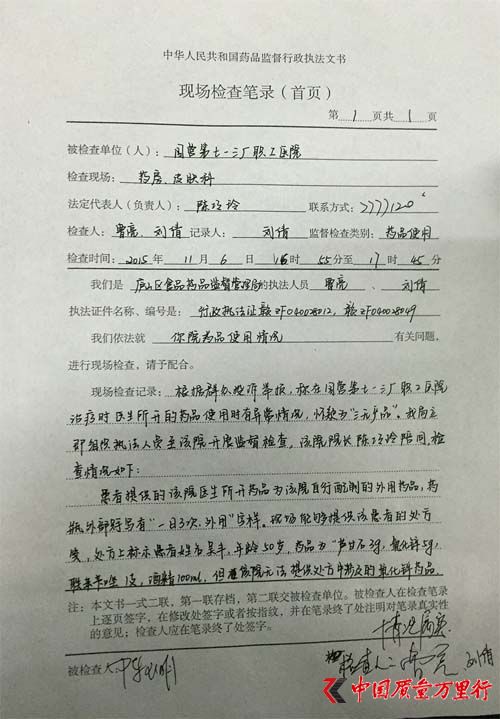 中华人民共和国药品监督行政执法文书
现场检查笔录（首页）
第 1 页共 1 页
被检查单位（人）：国营第七一三厂职工医院
检查现场：药房、皮肤科
法定代表人（负责人）：陈玲玲 联系方式：7777120
检查人：曹亮、刘倩 记录人：刘倩 监督检查类别：药品使用
检查时间：2015年11月6日16时55分至17时45分
我们是庐山区食品药品监督管理局的执法人员曹亮、刘倩
执法证件名称、编号是：行政执法证赣ZF040028012，赣ZF040028049
我们依法就 你院药品使用情况 有关问题，
进行现场检查，请予配合。
现场检查记录：根据群众投诉举报，称在国营第七一三厂职工医院
治疗时医生所开的药品使用时有异常情况，怀疑为“三无产品”。我局立
即组织执法人员至该院开展监督检查，该院院长陈玲玲陪同，检
查情况如下：
患者提供的该院医生所开药品为该院自行配制的外用药品，药
瓶外部写有“一日3次，外用”字样。现场能够提供该患者的处方
笺，处方上标示患者姓名吴丰，年龄50岁，药品为“芦甘石3g，氧化锌5g，
1支，酒精100ml，但是该院无法提供处方中涉及的氧化锌药品
注：本文书一式二联，第一联存档，第二联交被检查单位。被检查人在检查笔录
上逐页签字，在修改处签字或者按指纹，并在笔录终了处注明对笔录真实性
的意见；检查人应在笔录终了处签字。
被检查人
检查人：曹亮 刘倩
中国质量万里行